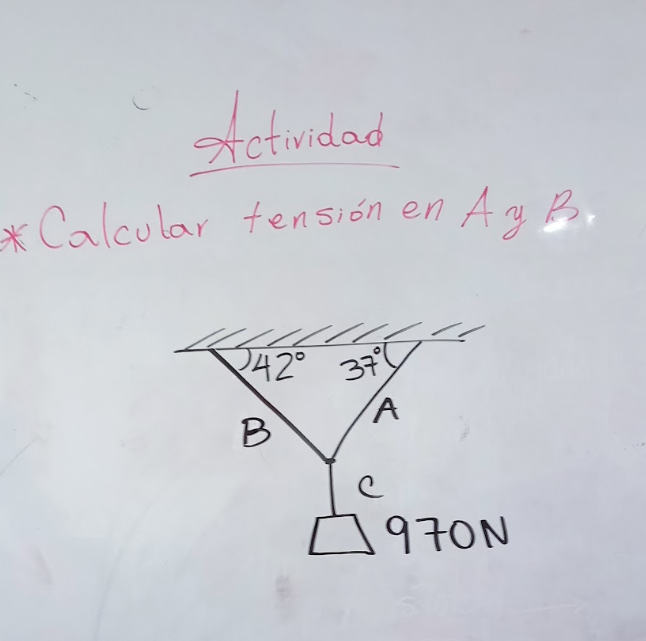 Actividad
* Calcular tensión en A y B.
42° 37°
B A
C
970N